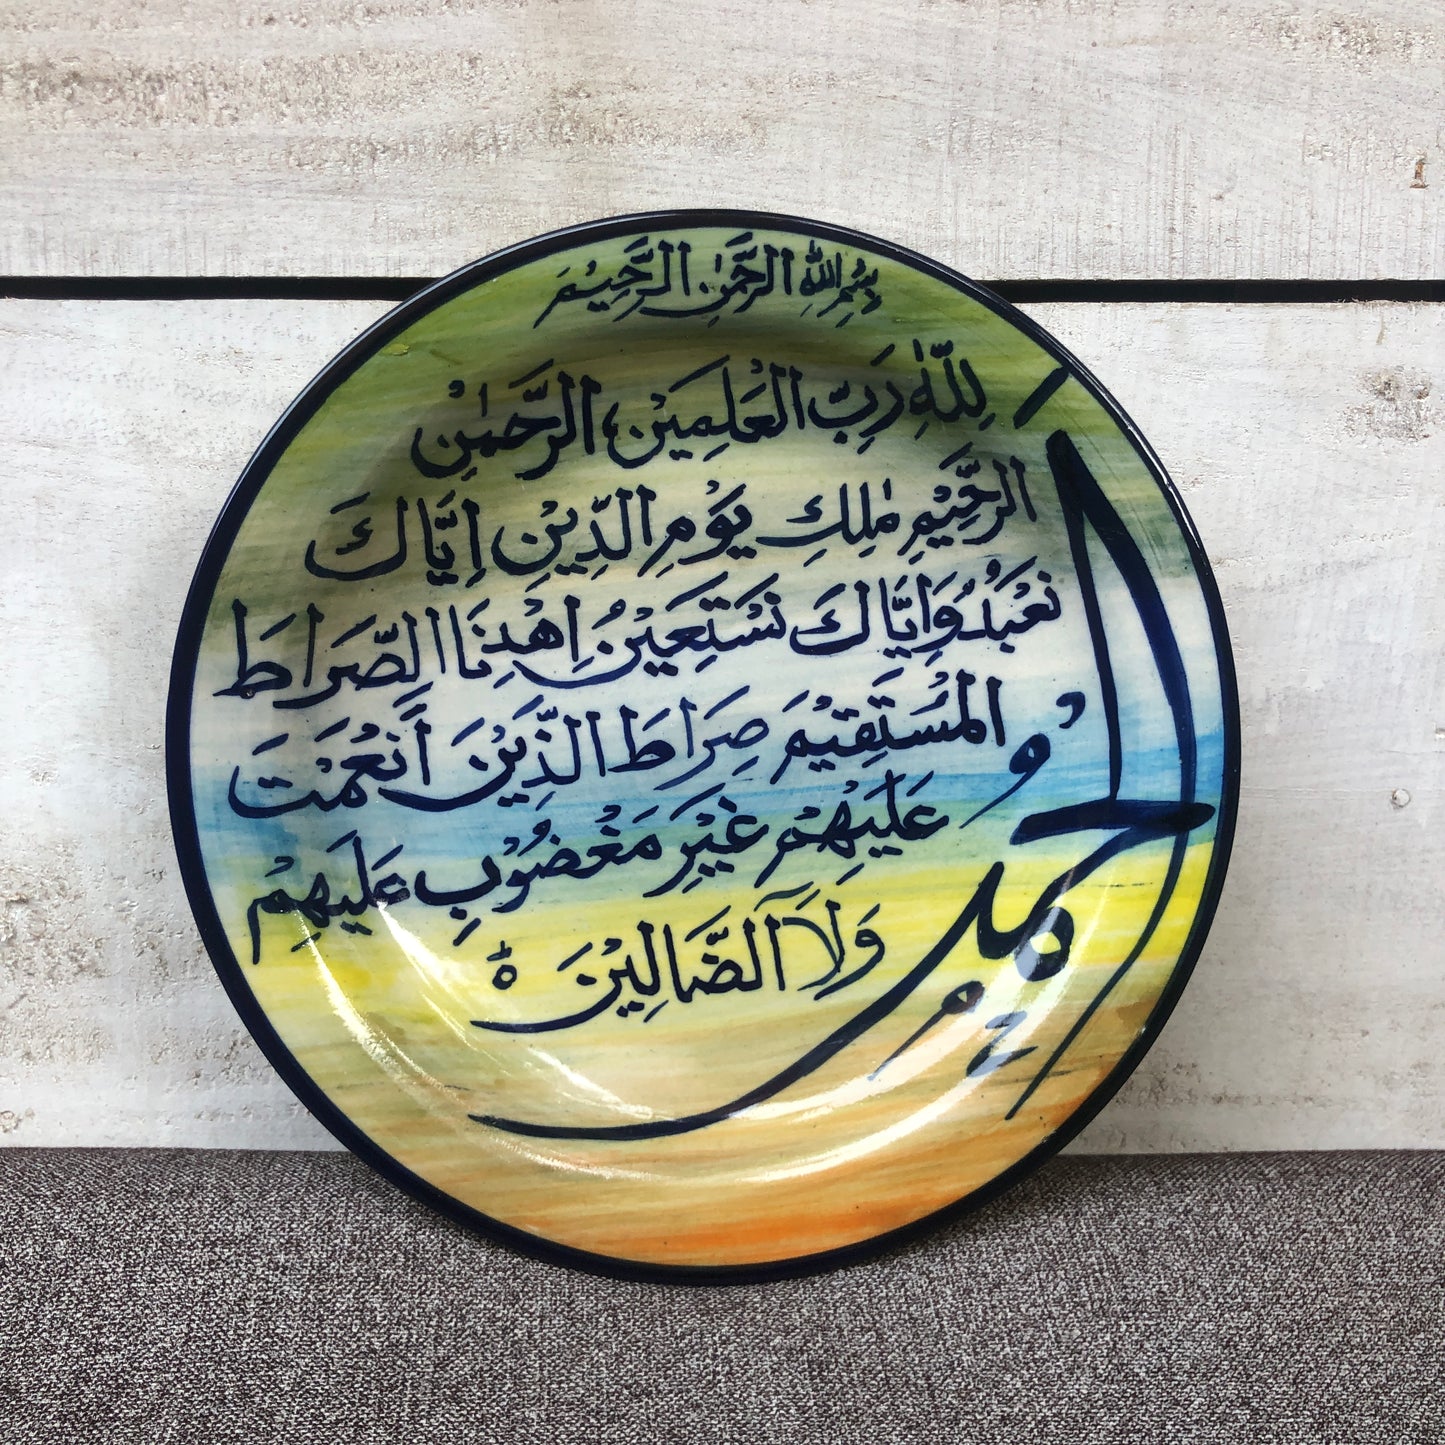 بِسْمِ اللهِ الرَّحْمٰنِ الرَّحِيْمِ
اَلْحَمْدُ
لِلّٰهِ رَبِّ الْعٰلَمِيْنَ الرَّحْمٰنِ
الرَّحِيْمِ مٰلِكِ يَوْمِ الدِّيْنِ اِيَّاكَ
نَعْبُدُ وَاِيَّاكَ نَسْتَعِيْنُ اِهْدِنَا الصِّرَاطَ
الْمُسْتَقِيْمَ صِرَاطَ الَّذِيْنَ أَنْعَمْتَ
عَلَيْهِمْ غَيْرِ مَغْضُوْبِ عَلَيْهِمْ
وَلَا الضَّالِّيْنَ